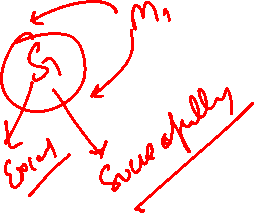 M1
S1
Exist
Successfully